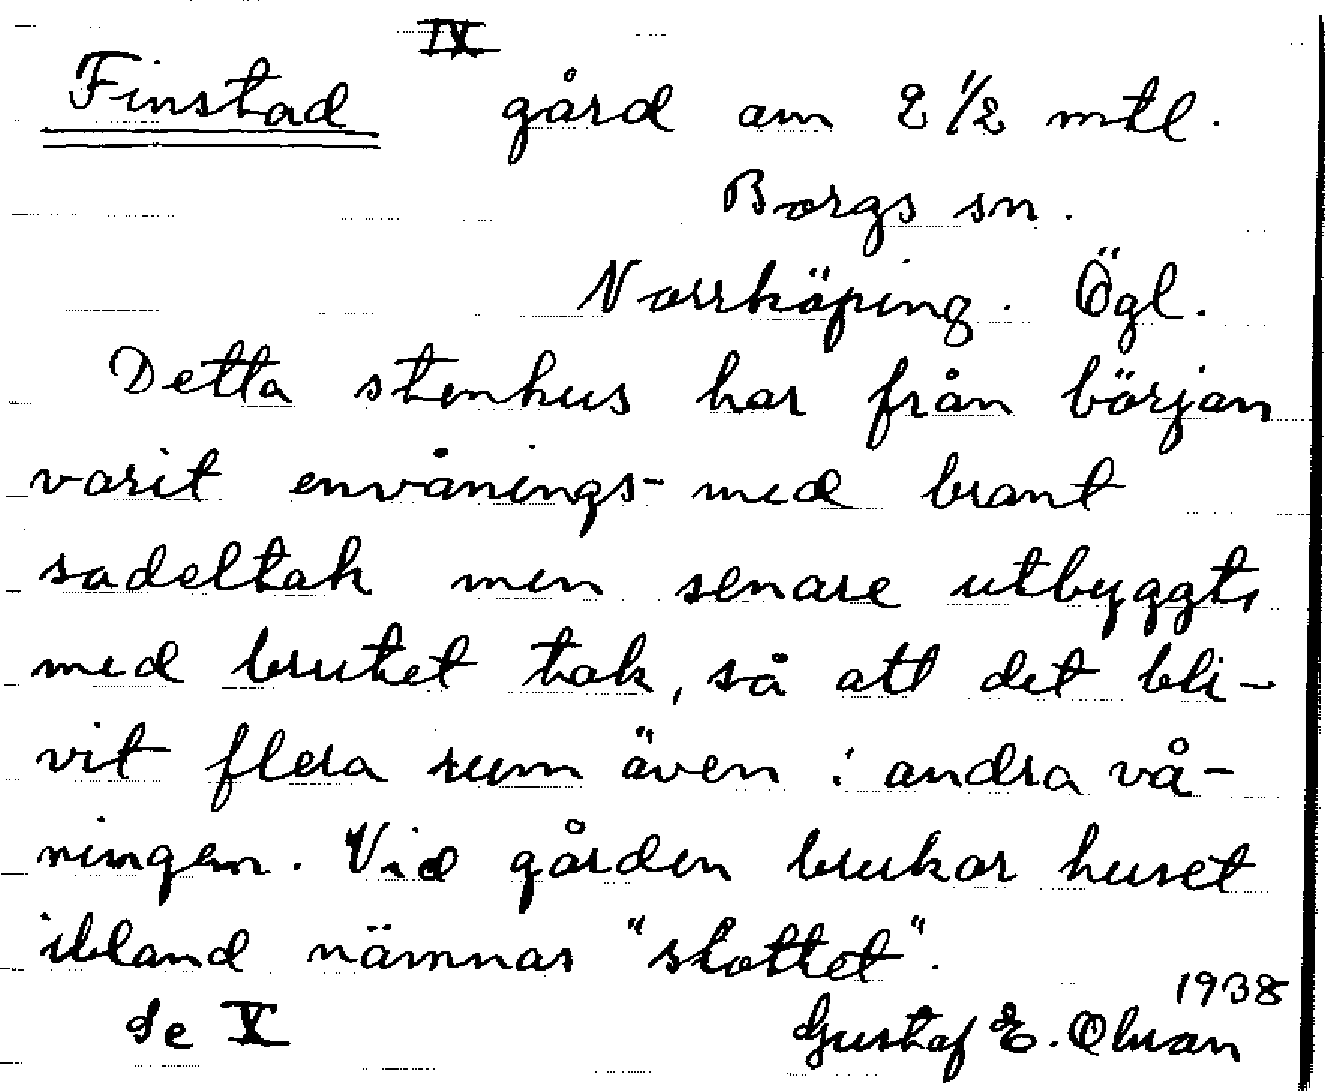 IX
Finstad gård om 2 1/2 mtl.
Borgs sn.
Norrköping. Ögl.
Detta stenhus har från början
varit envånings- med brant
sadeltak men senare utbyggts
med brutet tak, så att det bli-
vit flera rum även i andra vå-
ningen. Vid gården brukar huset
ibland nämnas "slottet".
1938
Se V Gustaf E. Olsson